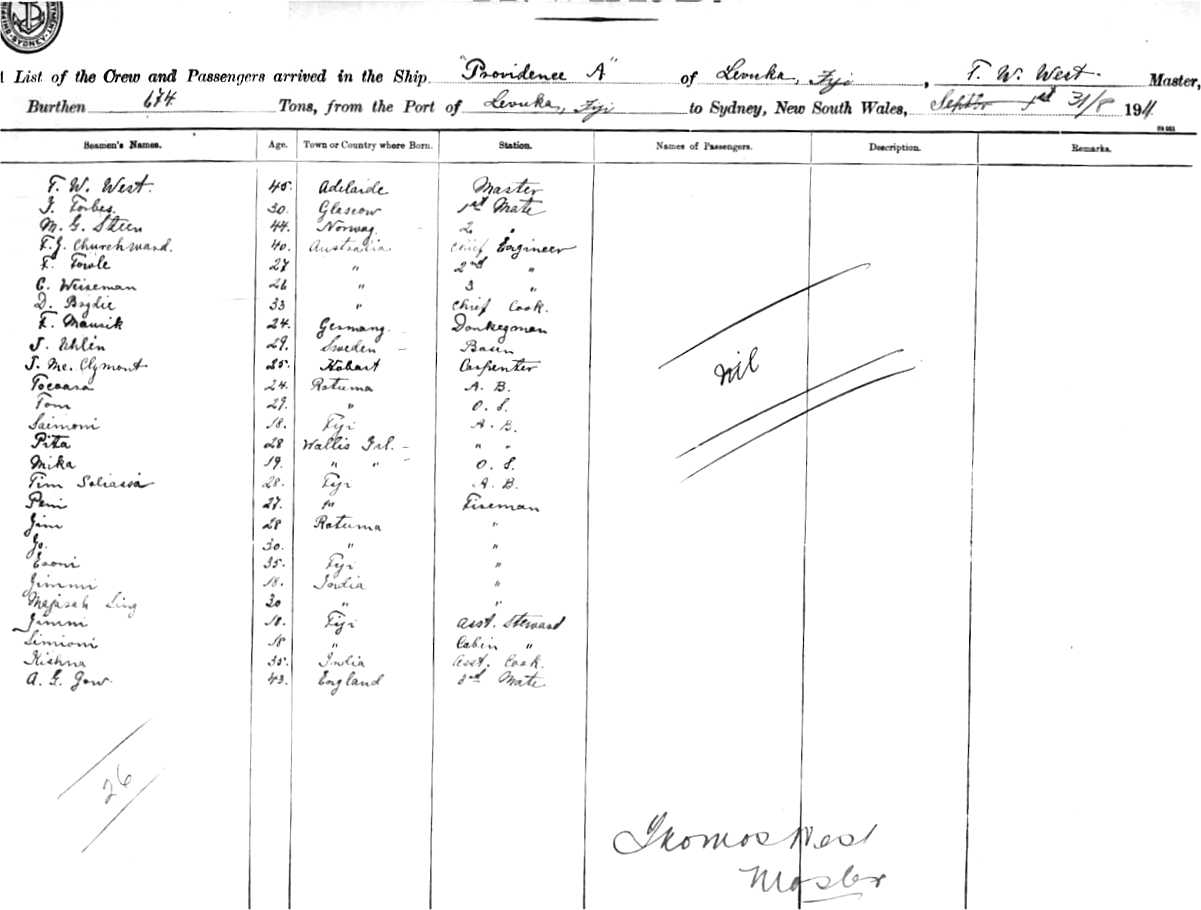 SYDNEY
List of the Crew and Passengers arrived in the Ship "Providence A" of Levuka, Fiji, T. W. West Master,
Burthen 674 Tons, from the Port of Levuka, Fiji to Sydney, New South Wales, Septbr 1st 31/8 1911
Seamen's Names. Age. Town or Country where Born. Station. Names of Passengers. Description. Remarks.
T. W. West. 45. Adelaide Master
J. Forbes. 30. Glascow 1st Mate
M. G. Steen 44. Norway 2 "
F. J. Churchward. 40. Australia Chief Engineer
F. Towle 27 " 2nd "
C. Weiseman 26 " 3 "
D. Brydie 33 " Chief Cook.
F. Maurik 24. Germany. Donkeyman
J. Uhlin 29. Sweden Bosun
J. Mc. Clymont 25. Hobart Carpenter
nil
24. Rotuma A. B.
Tom 29. " O. S.
Saimoni 18. Fiji A. B.
Pita 28 Wallis Isl. " "
Mika 19. " " O. S.
Tim 28. Fiji A. B.
Peni 27. " Fireman
Jim 28 Rotuma "
Jo. 30. " "
Esoni 35. Fiji "
Jimmi 18. India "
Sing 30 " "
Jimmi 18. Fiji Asst. Steward
Simioni 18 " Cabin "
Kishna 35. India Asst. Cook.
A. G. Gow. 43. England 3rd Mate
26
Thomas West
Master